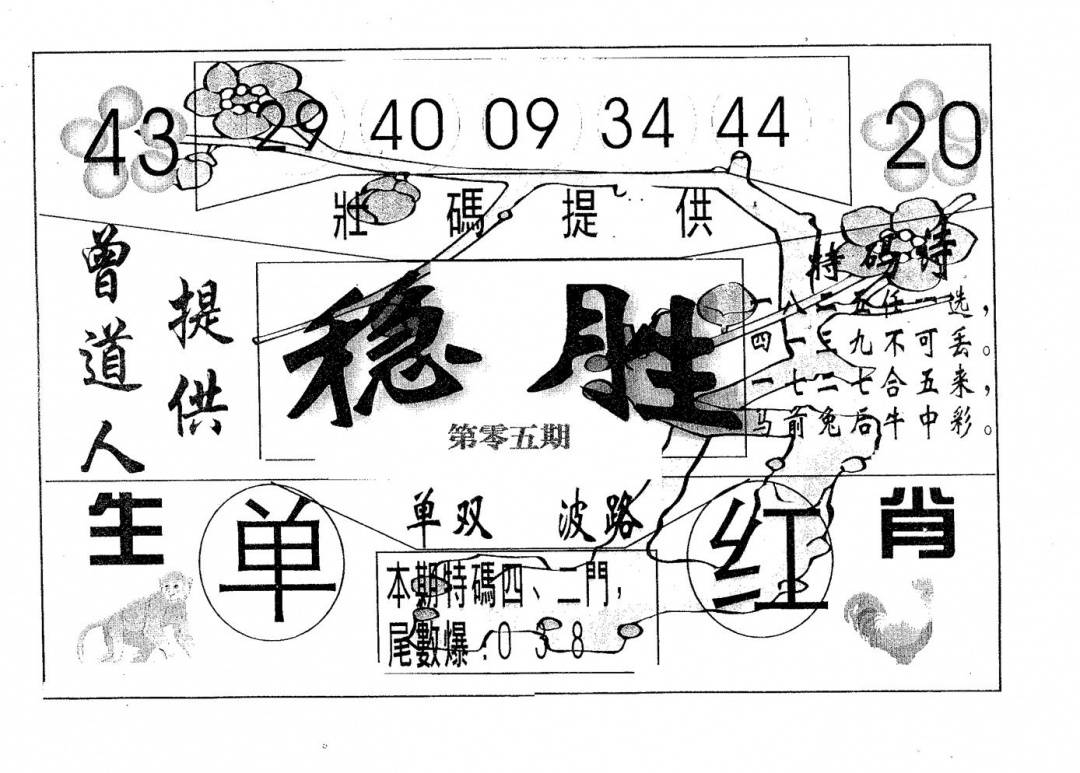 43 29 40 09 34 44 20
壯碼提供
曾道人
提供
稳胜
第零五期
特码诗
一八二五任一选，
四一三九不可丢。
一七二七合五来，
马前兔后牛中彩。
生肖
单双 波路
单
红
本期特碼四、二門，
尾數爆:0 3 8